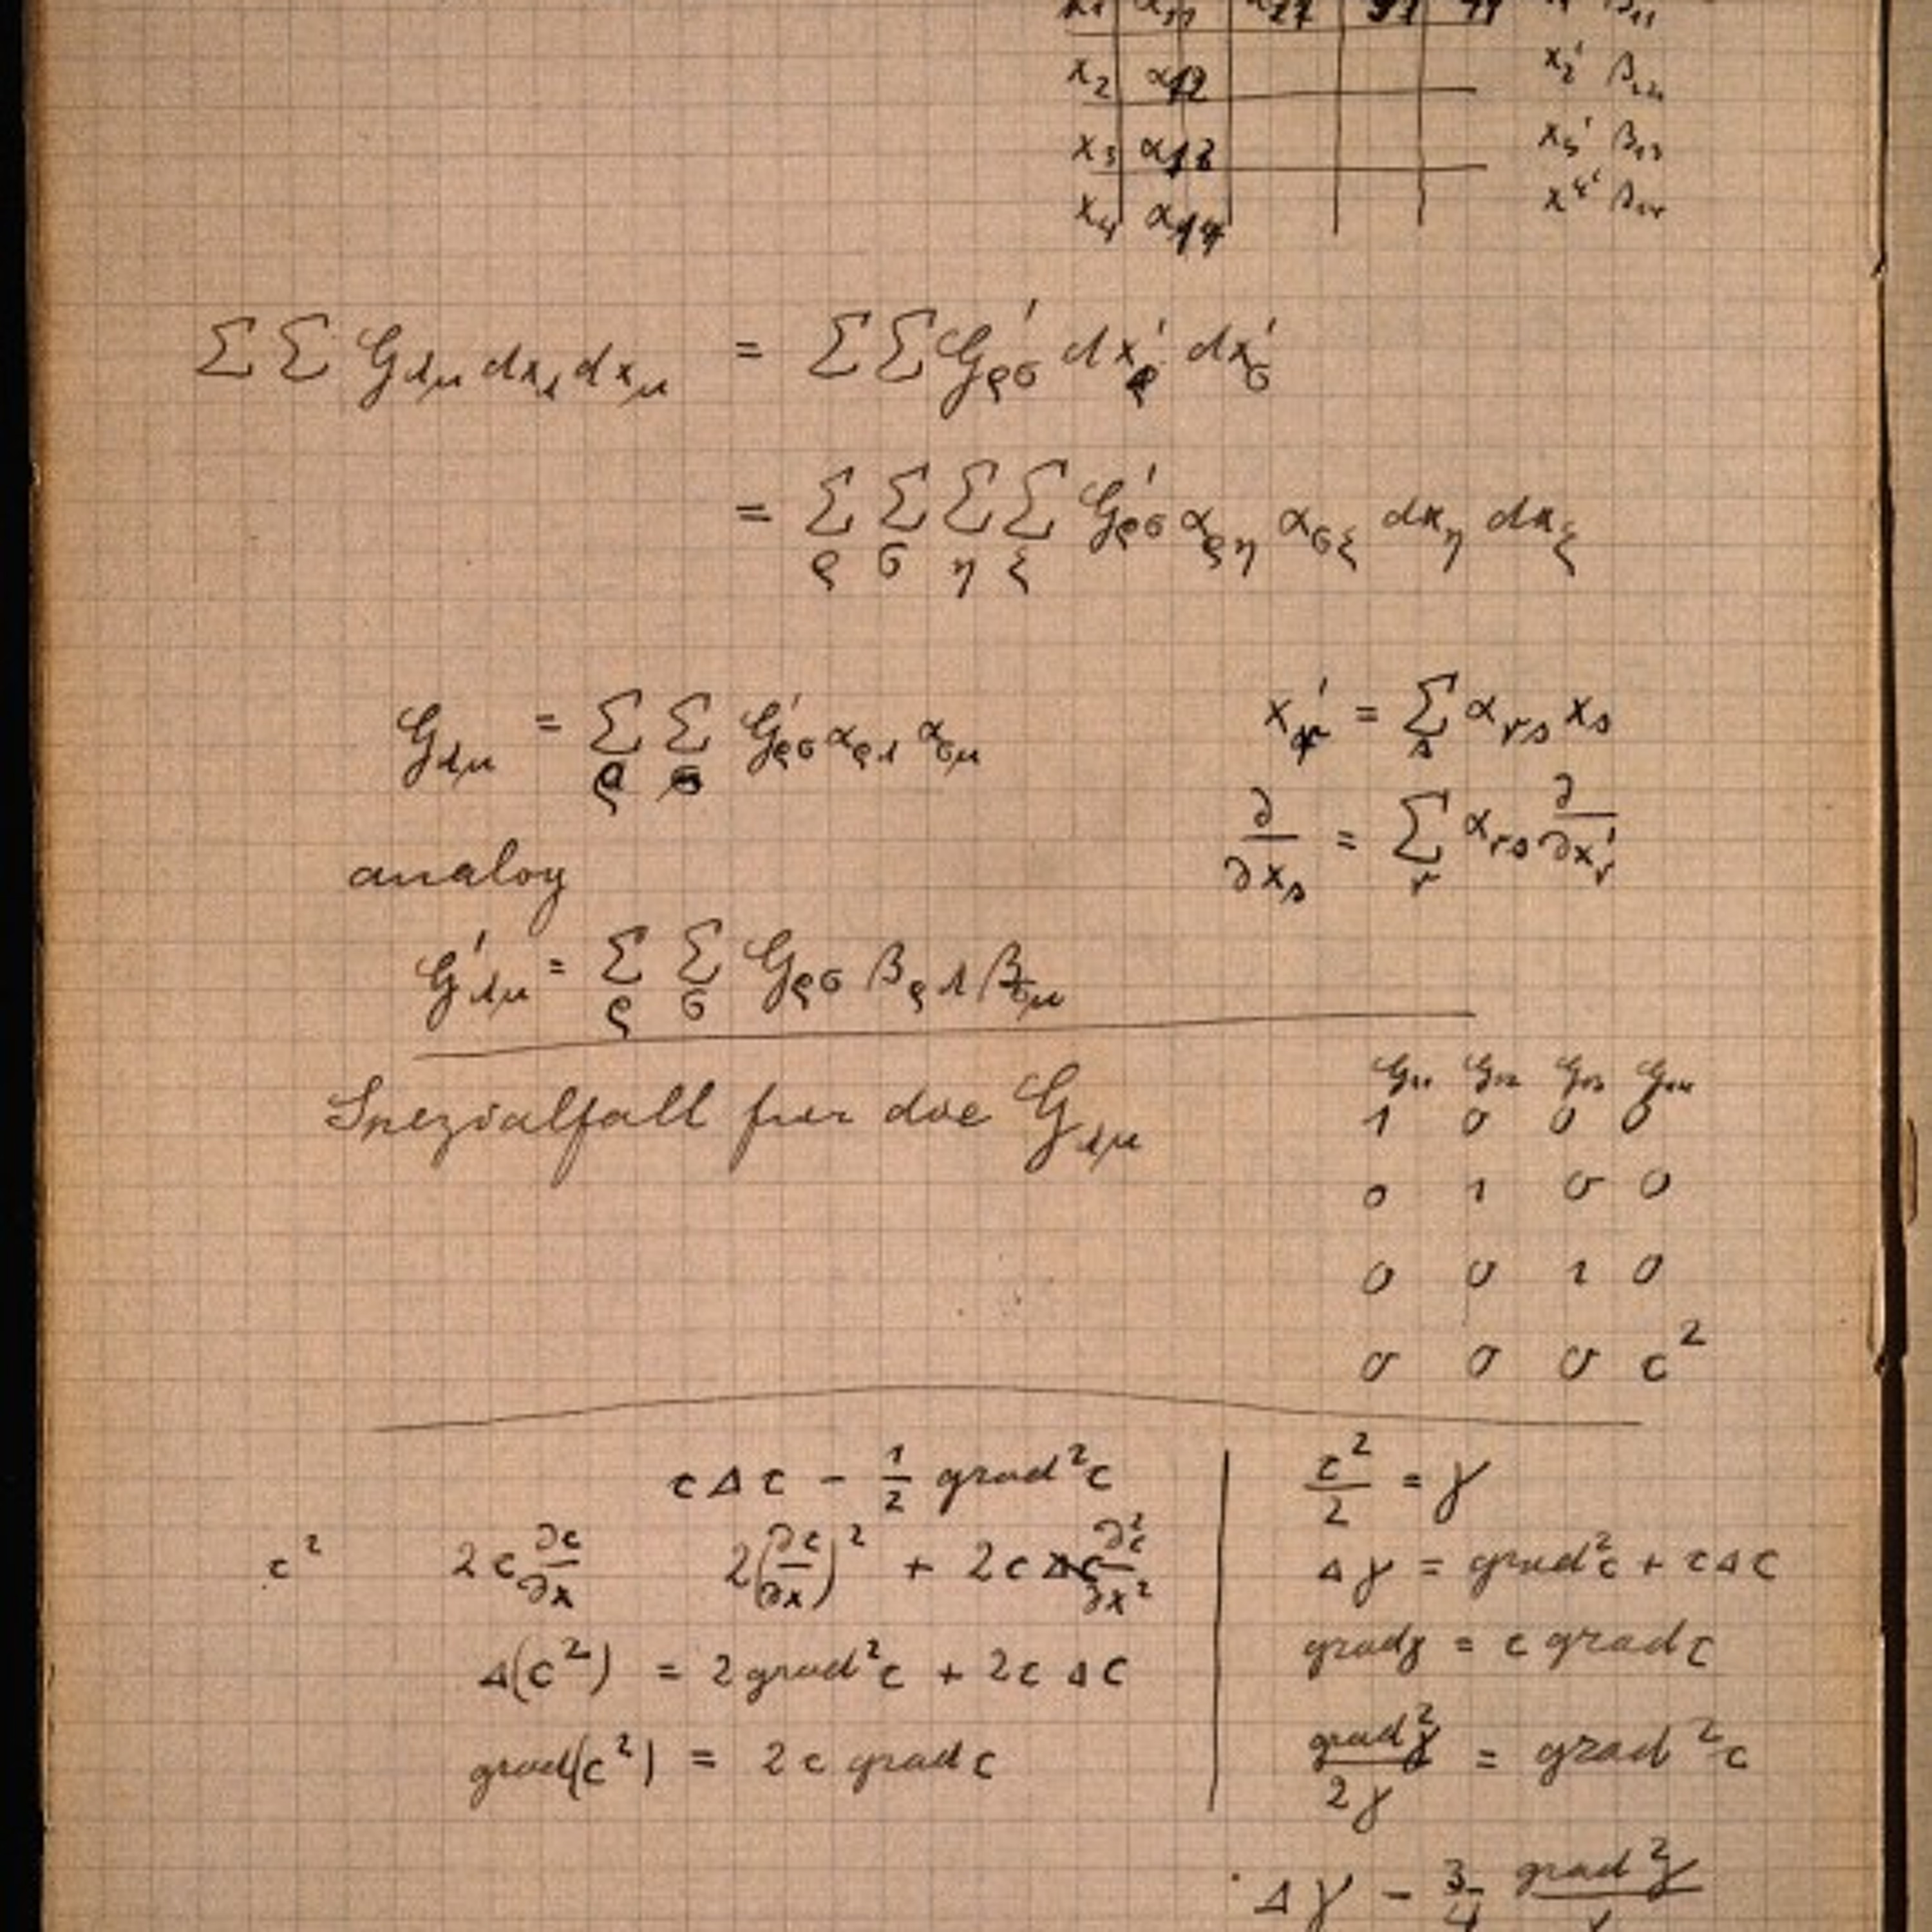 x₂ α₁₂ x₂' β₁₂
x₃ α₁₃ x₃' β₁₃
x₄ α₁₄ x₄' β₁₄
ΣΣ G_λμ dx_λ dx_μ = ΣΣ G'_ρσ dx'_ρ dx'_σ
= Σ_ρ Σ_σ Σ_η Σ_ξ G'_ρσ α_ρη α_σξ dx_η dx_ξ
G_λμ = Σ_ρ Σ_σ G'_ρσ α_ρλ α_σμ
x'_r = Σ_s α_rs x_s
∂/∂x_s = Σ_r α_rs ∂/∂x'_r
analog
G'_λμ = Σ_ρ Σ_σ G_ρσ β_ρλ β_σμ
Spezialfall für die G_λμ
G₁₁ G₁₂ G₁₃ G₁₄
1 0 0 0
0 1 0 0
0 0 1 0
0 0 0 c²
cΔc − 1/2 grad²c
c² 2c ∂c/∂x 2(∂c/∂x)² + 2c ∂²c/∂x²
Δ(c²) = 2 grad²c + 2c Δc
grad(c²) = 2c grad c
c²/2 = γ
Δγ = grad²c + cΔc
gradγ = c grad c
grad²γ/2γ = grad²c
Δγ − 3/4 grad²γ/γ